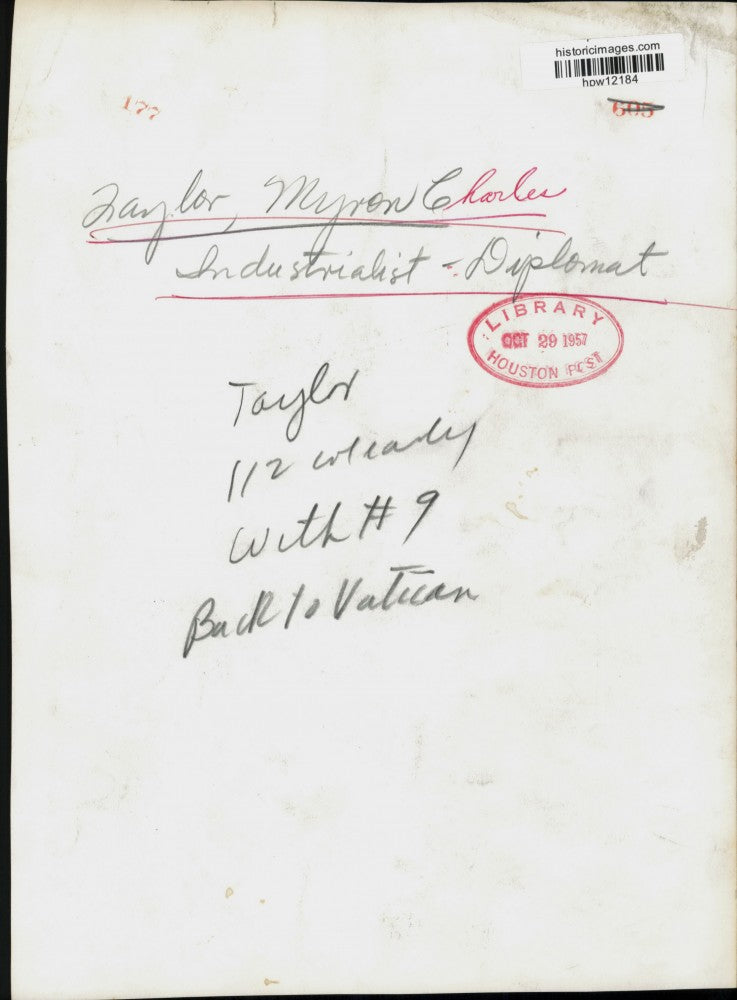 historicimages.com
hpw12184
177
605
Taylor, Myron Charles
Industrialist - Diplomat
LIBRARY
OCT 29 1957
HOUSTON POST
Taylor
112
With # 9
Back to Vatican